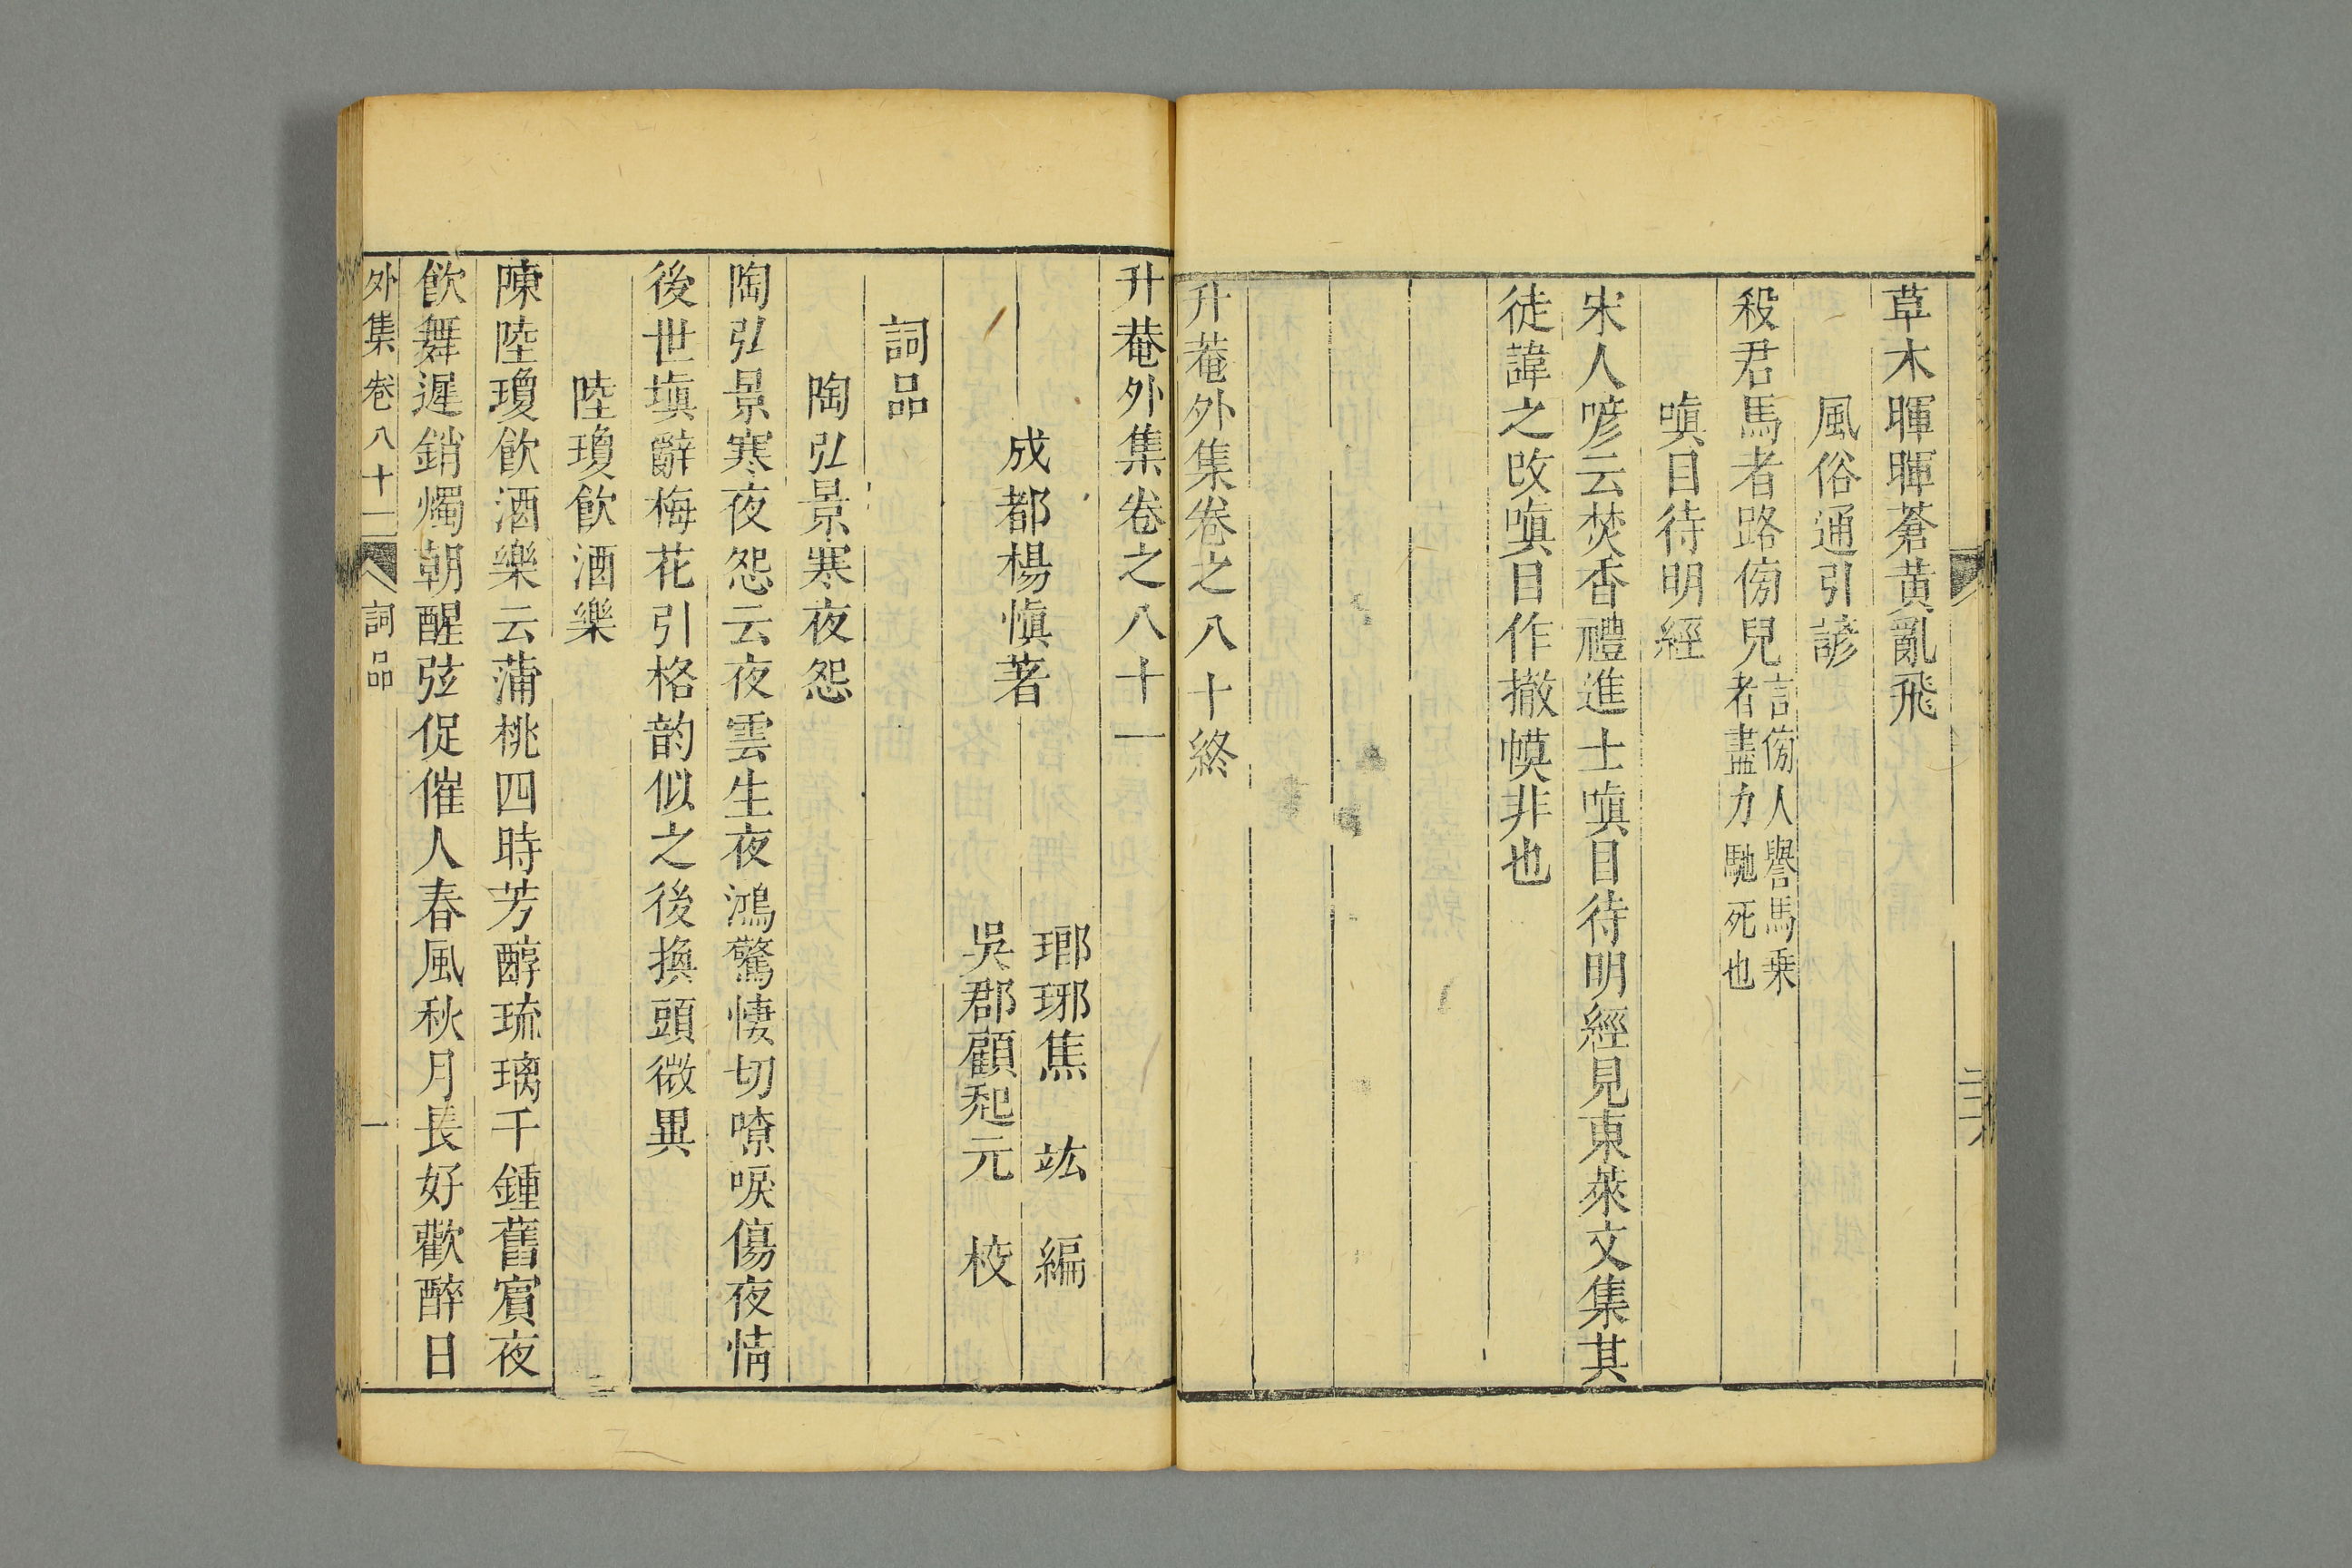 草木暉暉蒼黃亂飛
風俗通引諺
殺君馬者路傍兒言傍人譽馬乗
者盡力馳死也
嗔目待明經
宋人喭云焚香禮進士嗔目待明經見東萊文集其
徒諱之改嗔目作撤幙非也
升菴外集卷之八十終
升菴外集卷之八十一
成都楊愼著
瑯琊焦竑編
吳郡顧起元校
詞品
陶弘景寒夜怨
陶弘景寒夜怨云夜雲生夜鴻驚悽切嘹唳傷夜情
後世塡辭梅花引格韵似之後換頭微異
陸瓊飮酒樂
陳陸瓊飮酒樂云蒲桃四時芳醇琉璃千鍾舊賔夜
飮舞遲銷燭朝醒弦促催人春風秋月長好歡醉日
外集卷八十一
詞品
一